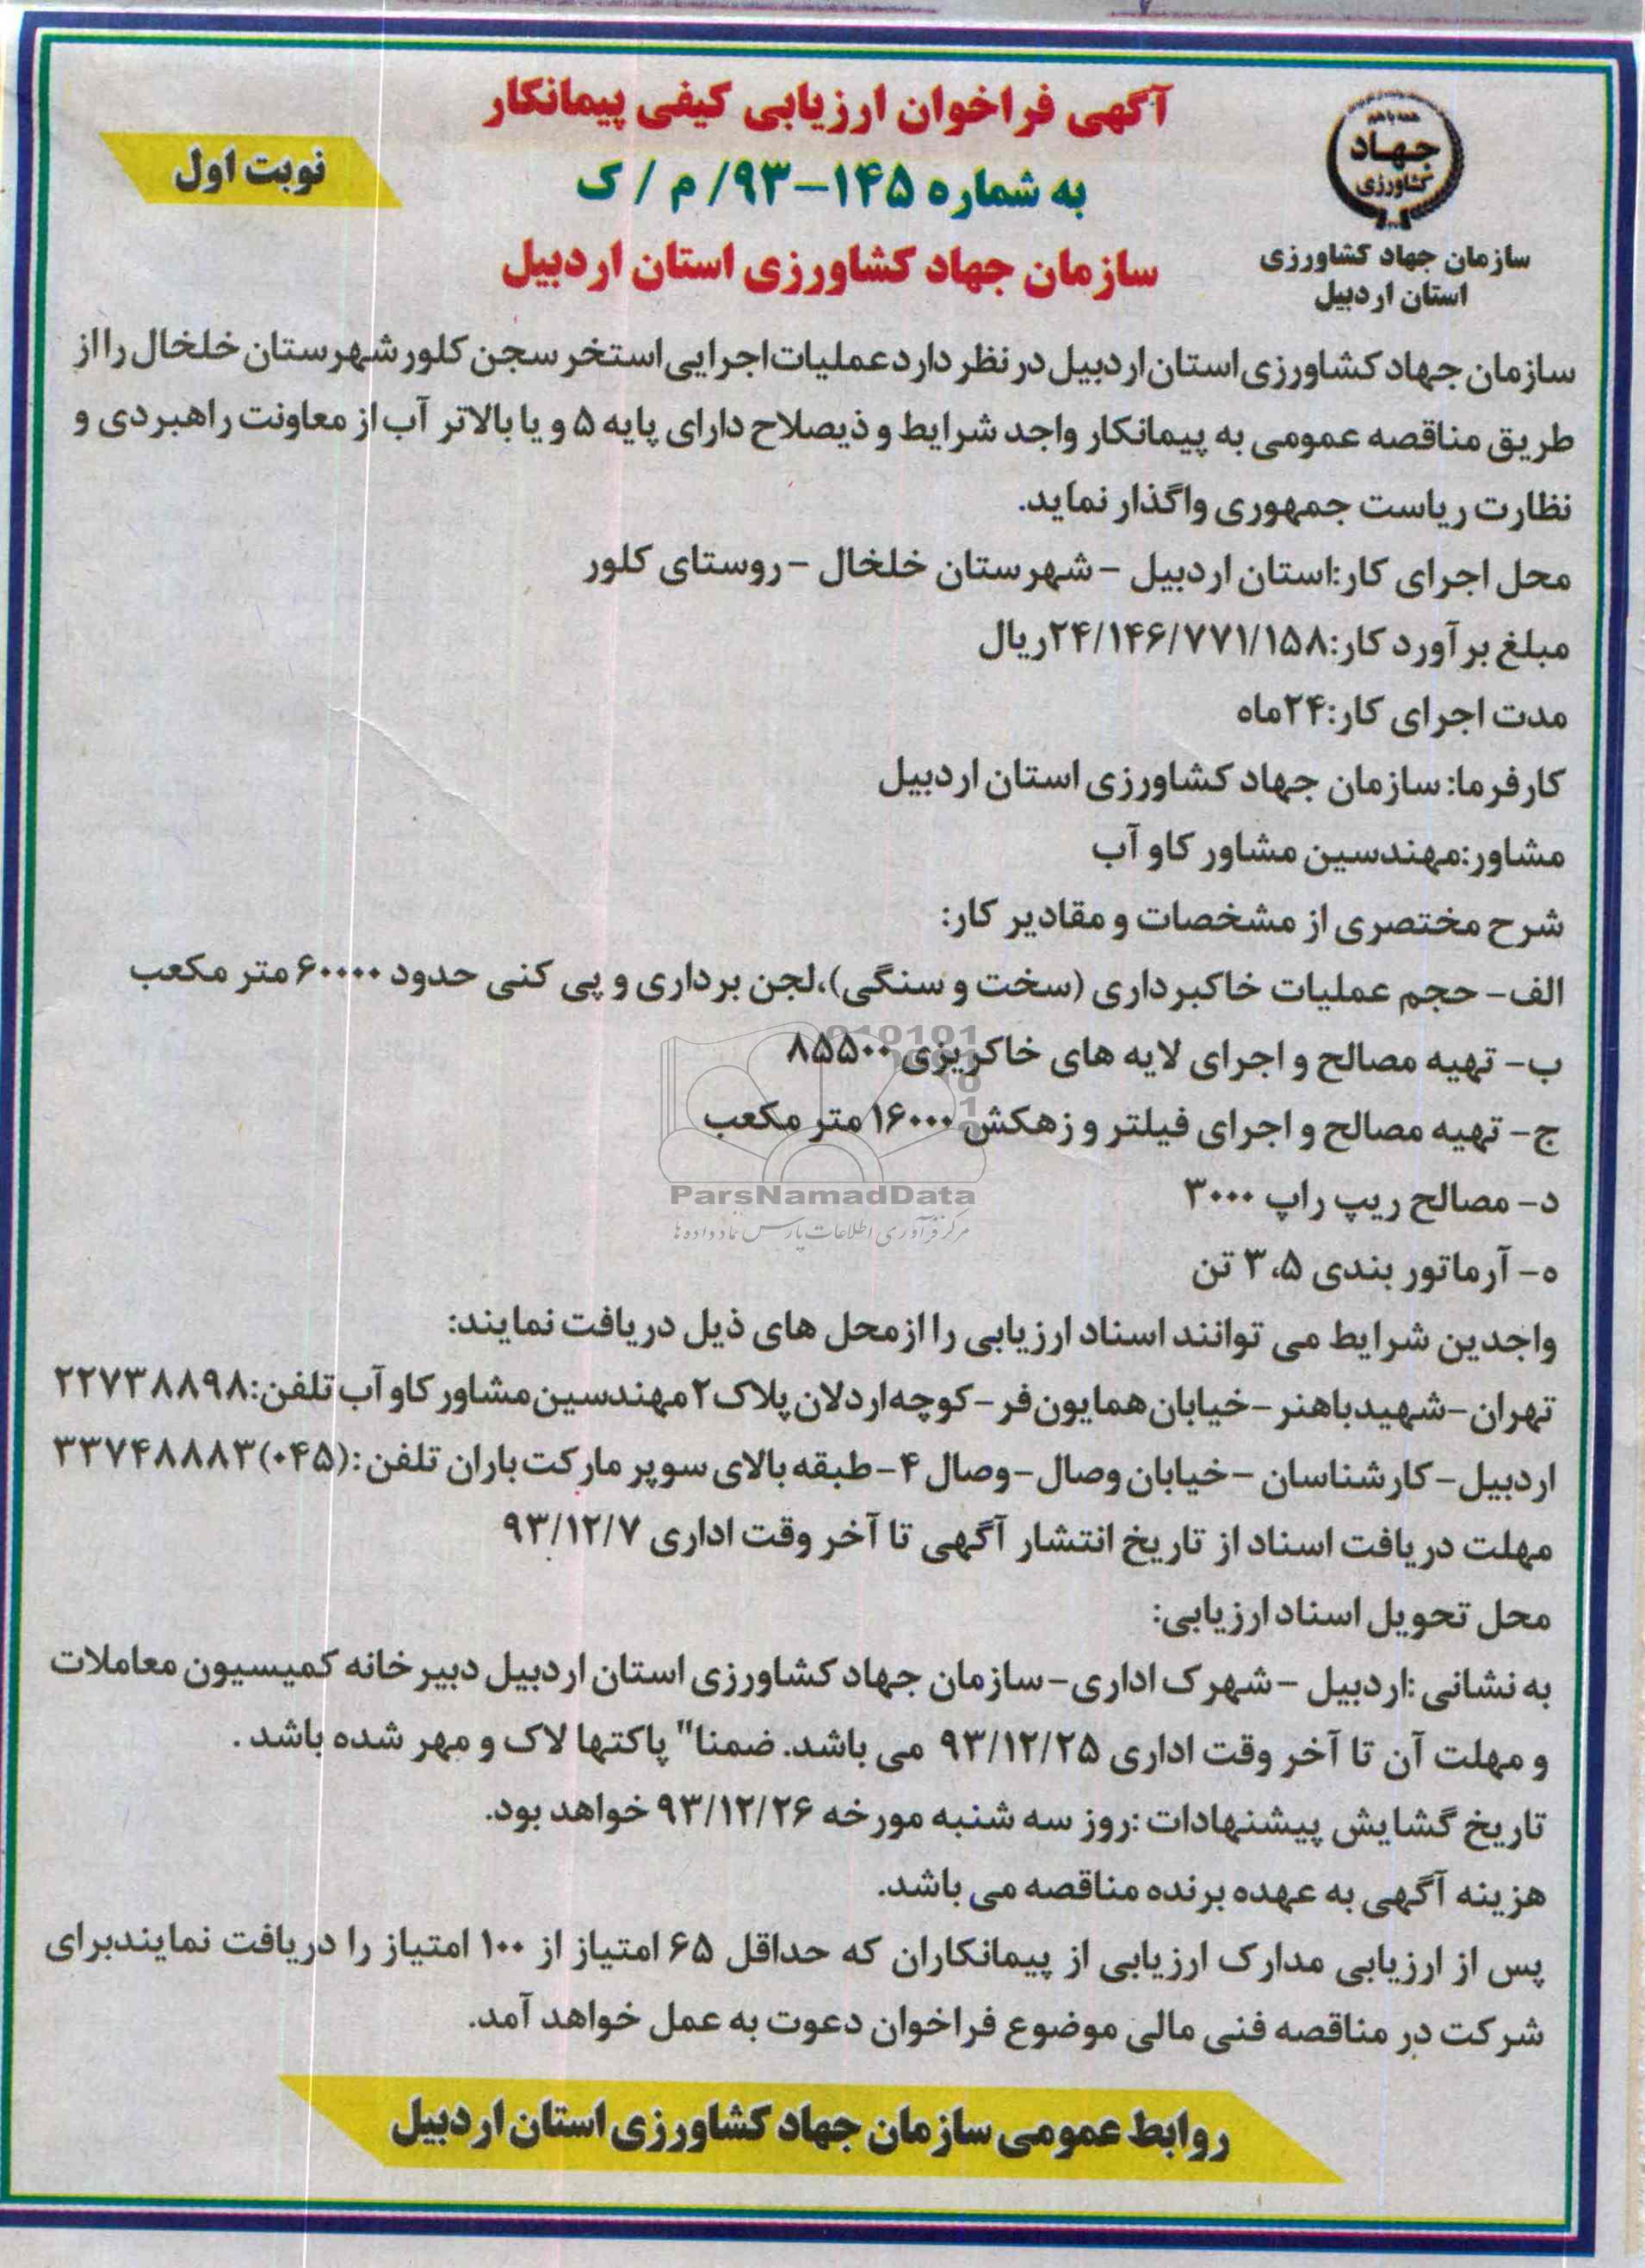 آگهی فراخوان ارزیابی کیفی پیمانکار
به شماره ۱۴۵-۹۳/ م / ک
سازمان جهاد کشاورزی استان اردبیل
نوبت اول
همه با هم
جهاد
کشاورزی
سازمان جهاد کشاورزی
استان اردبیل
سازمان جهاد کشاورزی استان اردبیل در نظر دارد عملیات اجرایی استخر سجن کلور شهرستان خلخال را از
طریق مناقصه عمومی به پیمانکار واجد شرایط و ذیصلاح دارای پایه ۵ و یا بالاتر آب از معاونت راهبردی و
نظارت ریاست جمهوری واگذار نماید.
محل اجرای کار:استان اردبیل - شهرستان خلخال - روستای کلور
مبلغ برآورد کار:۲۴/۱۴۶/۷۷۱/۱۵۸ریال
مدت اجرای کار:۲۴ماه
کارفرما: سازمان جهاد کشاورزی استان اردبیل
مشاور:مهندسین مشاور کاو آب
شرح مختصری از مشخصات و مقادیر کار:
الف- حجم عملیات خاکبرداری (سخت و سنگی)،لجن برداری و پی کنی حدود ۶۰۰۰۰ متر مکعب
ب- تهیه مصالح و اجرای لایه های خاکریزی ۸۵۵۰۰
ج- تهیه مصالح و اجرای فیلتر و زهکش ۱۶۰۰۰ متر مکعب
د- مصالح ریپ راپ ۳۰۰۰
ه- آرماتور بندی ۳،۵ تن
ParsNamadData
مرکز فرآوری اطلاعات پارس نماد داده ها
واجدین شرایط می توانند اسناد ارزیابی را از محل های ذیل دریافت نمایند:
تهران-شهیدباهنر-خیابان همایون فر-کوچه اردلان پلاک ۲ مهندسین مشاور کاو آب تلفن:۲۲۷۳۸۸۹۸
اردبیل-کارشناسان -خیابان وصال-وصال ۴-طبقه بالای سوپر مارکت باران تلفن:(۰۴۵)۳۳۷۴۸۸۸۳
مهلت دریافت اسناد از تاریخ انتشار آگهی تا آخر وقت اداری ۹۳/۱۲/۷
محل تحویل اسناد ارزیابی:
به نشانی :اردبیل -شهرک اداری-سازمان جهاد کشاورزی استان اردبیل دبیرخانه کمیسیون معاملات
و مهلت آن تا آخر وقت اداری ۹۳/۱۲/۲۵ می باشد. ضمنا" پاکتها لاک و مهر شده باشد .
تاریخ گشایش پیشنهادات :روز سه شنبه مورخه ۹۳/۱۲/۲۶ خواهد بود.
هزینه آگهی به عهده برنده مناقصه می باشد.
پس از ارزیابی مدارک ارزیابی از پیمانکاران که حداقل ۶۵ امتیاز از ۱۰۰ امتیاز را دریافت نمایندبرای
شرکت در مناقصه فنی مالی موضوع فراخوان دعوت به عمل خواهد آمد.
روابط عمومی سازمان جهاد کشاورزی استان اردبیل